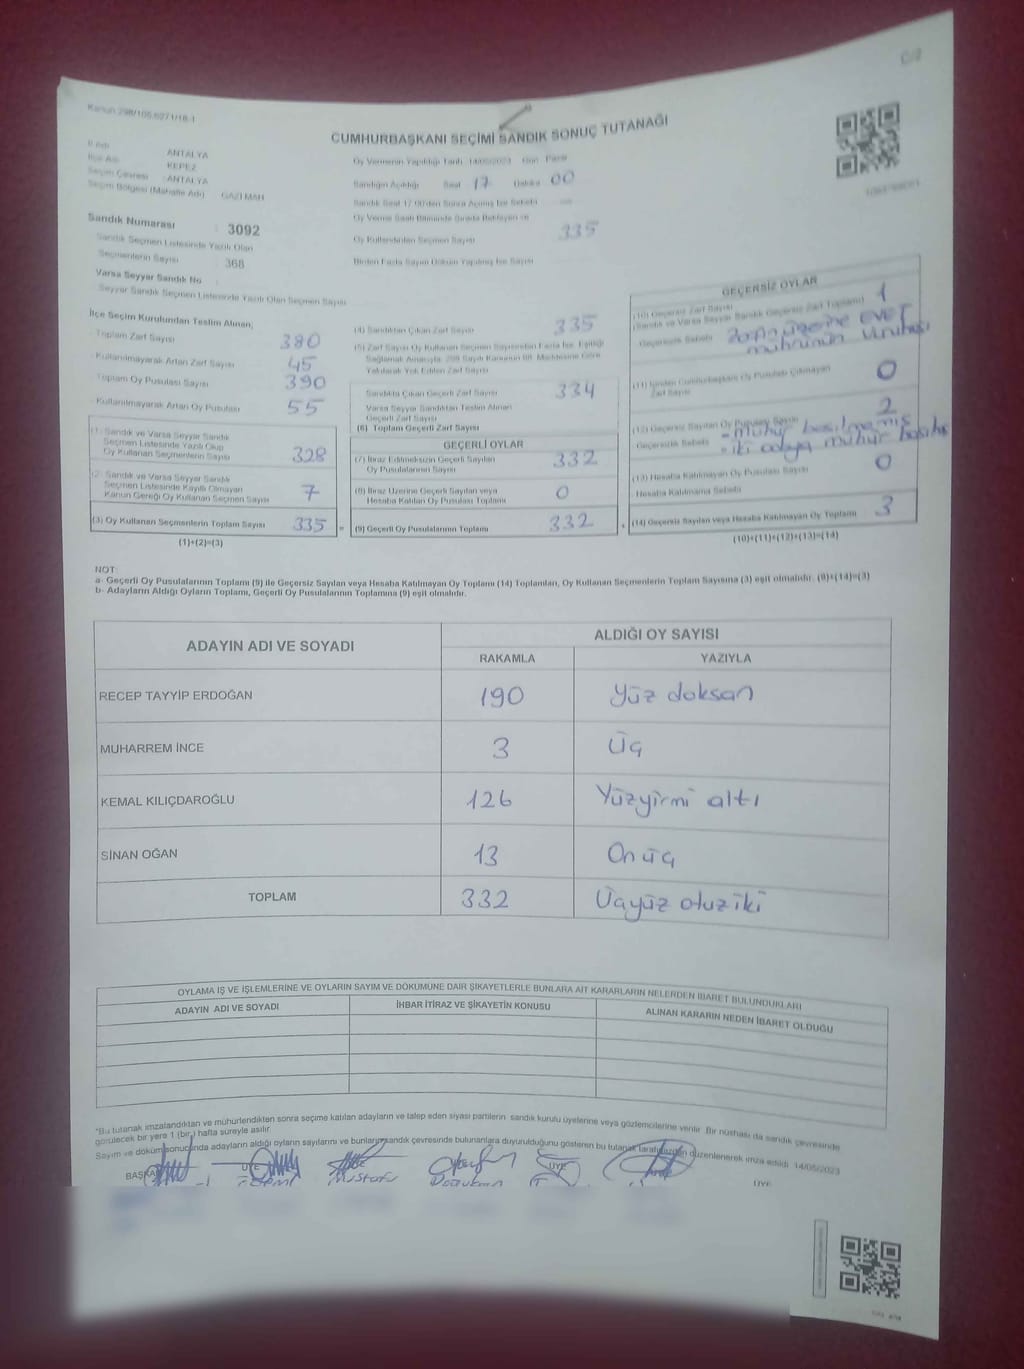 C/2
Kanun:298/105,6271/18-1
CUMHURBAŞKANI SEÇİMİ SANDIK SONUÇ TUTANAĞI
İl Adı ANTALYA
İlçe Adı KEPEZ
Seçim Çevresi ANTALYA
Seçim Bölgesi (Mahalle Adı) GAZİ MAH
Oy Vermenin Yapıldığı Tarih 14/05/2023 Gün Pazar
Sandığın Açıldığı Saat 17 Dakika 00
Sandık Saat 17.00'den Sonra Açılmış İse Sebebi
Sandık Numarası : 3092
Sandık Seçmen Listesinde Yazılı Olan
Seçmenlerin Sayısı 368
Varsa Seyyar Sandık No
Seyyar Sandık Seçmen Listesinde Yazılı Olan Seçmen Sayısı
Oy Kullandırılan Seçmen Sayısı 335
Birden Fazla Sayım Döküm Yapılmış İse Sayısı
İlçe Seçim Kurulundan Teslim Alınan;
Toplam Zarf Sayısı 380
Kullanılmayarak Artan Zarf Sayısı 45
Toplam Oy Pusulası Sayısı 390
Kullanılmayarak Artan Oy Pusulası 55
(1) Sandık ve Varsa Seyyar Sandık
Seçmen Listesinde Yazılı Olup
Oy Kullanan Seçmenlerin Sayısı 328
(2) Sandık ve Varsa Seyyar Sandık
Seçmen Listesinde Kayıtlı Olmayan
Kanun Gereği Oy Kullanan Seçmen Sayısı 7
(3) Oy Kullanan Seçmenlerin Toplam Sayısı 335
(1)+(2)=(3)
(4) Sandıktan Çıkan Zarf Sayısı 335
(5) Zarf Sayısı Oy Kullanan Seçmen Sayısından Fazla İse, Eşitliği
Sağlamak Amacıyla, 298 Sayılı Kanunun 98. Maddesine Göre
Yakılarak Yok Edilen Zarf Sayısı
Sandıkta Çıkan Geçerli Zarf Sayısı 334
Varsa Seyyar Sandıktan Teslim Alınan
Geçerli Zarf Sayısı
(6) Toplam Geçerli Zarf Sayısı
GEÇERLİ OYLAR
(7) İtiraz Edilmeksizin Geçerli Sayılan
Oy Pusulalarının Sayısı 332
(8) İtiraz Üzerine Geçerli Sayılan veya
Hesaba Katılan Oy Pusulası Toplamı 0
= (9) Geçerli Oy Pusulalarının Toplamı 332
GEÇERSİZ OYLAR
(10) Geçersiz Zarf Sayısı
(Sandık ve Varsa Seyyar Sandık Geçersiz Zarf Toplamı) 1
Geçersizlik Sebebi Zarfın üzerine EVET
mührünün vurulması
(11) İçinden Cumhurbaşkanı Oy Pusulası Çıkmayan
Zarf Sayısı 0
(12) Geçersiz Sayılan Oy Pusulası Sayısı 2
Geçersizlik Sebebi - mühür basılmamış
- iki adaya mühür basılmış
(13) Hesaba Katılmayan Oy Pusulası Sayısı 0
Hesaba Katılmama Sebebi
+ (14) Geçersiz Sayılan veya Hesaba Katılmayan Oy Toplamı 3
(10)+(11)+(12)+(13)=(14)
NOT:
a- Geçerli Oy Pusulalarının Toplamı (9) ile Geçersiz Sayılan veya Hesaba Katılmayan Oy Toplamı (14) Toplamları, Oy Kullanan Seçmenlerin Toplam Sayısına (3) eşit olmalıdır. (9)+(14)=(3)
b- Adayların Aldığı Oyların Toplamı, Geçerli Oy Pusulalarının Toplamına (9) eşit olmalıdır.
ADAYIN ADI VE SOYADI
ALDIĞI OY SAYISI
RAKAMLA YAZIYLA
RECEP TAYYİP ERDOĞAN 190 Yüz doksan
MUHARREM İNCE 3 Üç
KEMAL KILIÇDAROĞLU 126 Yüzyirmi altı
SİNAN OĞAN 13 Onüç
TOPLAM 332 Üçyüz otuziki
OYLAMA İŞ VE İŞLEMLERİNE VE OYLARIN SAYIM VE DÖKÜMÜNE DAİR ŞİKAYETLERLE BUNLARA AİT KARARLARIN NELERDEN İBARET BULUNDUKLARI
ADAYIN ADI VE SOYADI
İHBAR İTİRAZ VE ŞİKAYETİN KONUSU
ALINAN KARARIN NEDEN İBARET OLDUĞU
*Bu tutanak imzalandıktan ve mühürlendikten sonra seçime katılan adayların ve talep eden siyasi partilerin sandık kurulu üyelerine veya gözlemcilerine verilir. Bir nüshası da sandık çevresinde
görülecek bir yere 1 (bir) hafta süreyle asılır.
Sayım ve döküm sonucunda adayların aldığı oyların sayılarını ve bunların sandık çevresinde bulunanlara duyurulduğunu gösteren bu tutanak tarafımızdan düzenlenerek imza edildi. 14/05/2023
BAŞKAN ÜYE ÜYE ÜYE
Mustafa